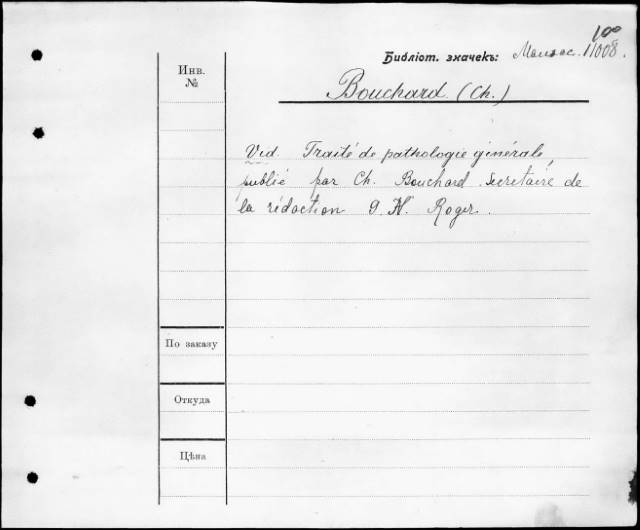 100
Библiот. значекъ: 11008.
Инв.
№
Bouchard (Ch.)
Vid. Traité de pathologie générale,
publié par Ch. Bouchard. Secrétaire de
la rédaction G. H. Roger.
По заказу
Откуда
Цѣна